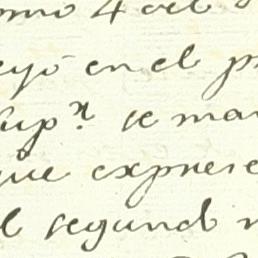 omo 4 del
eyó en el p
Sup.n se ma
que exprese
l segund